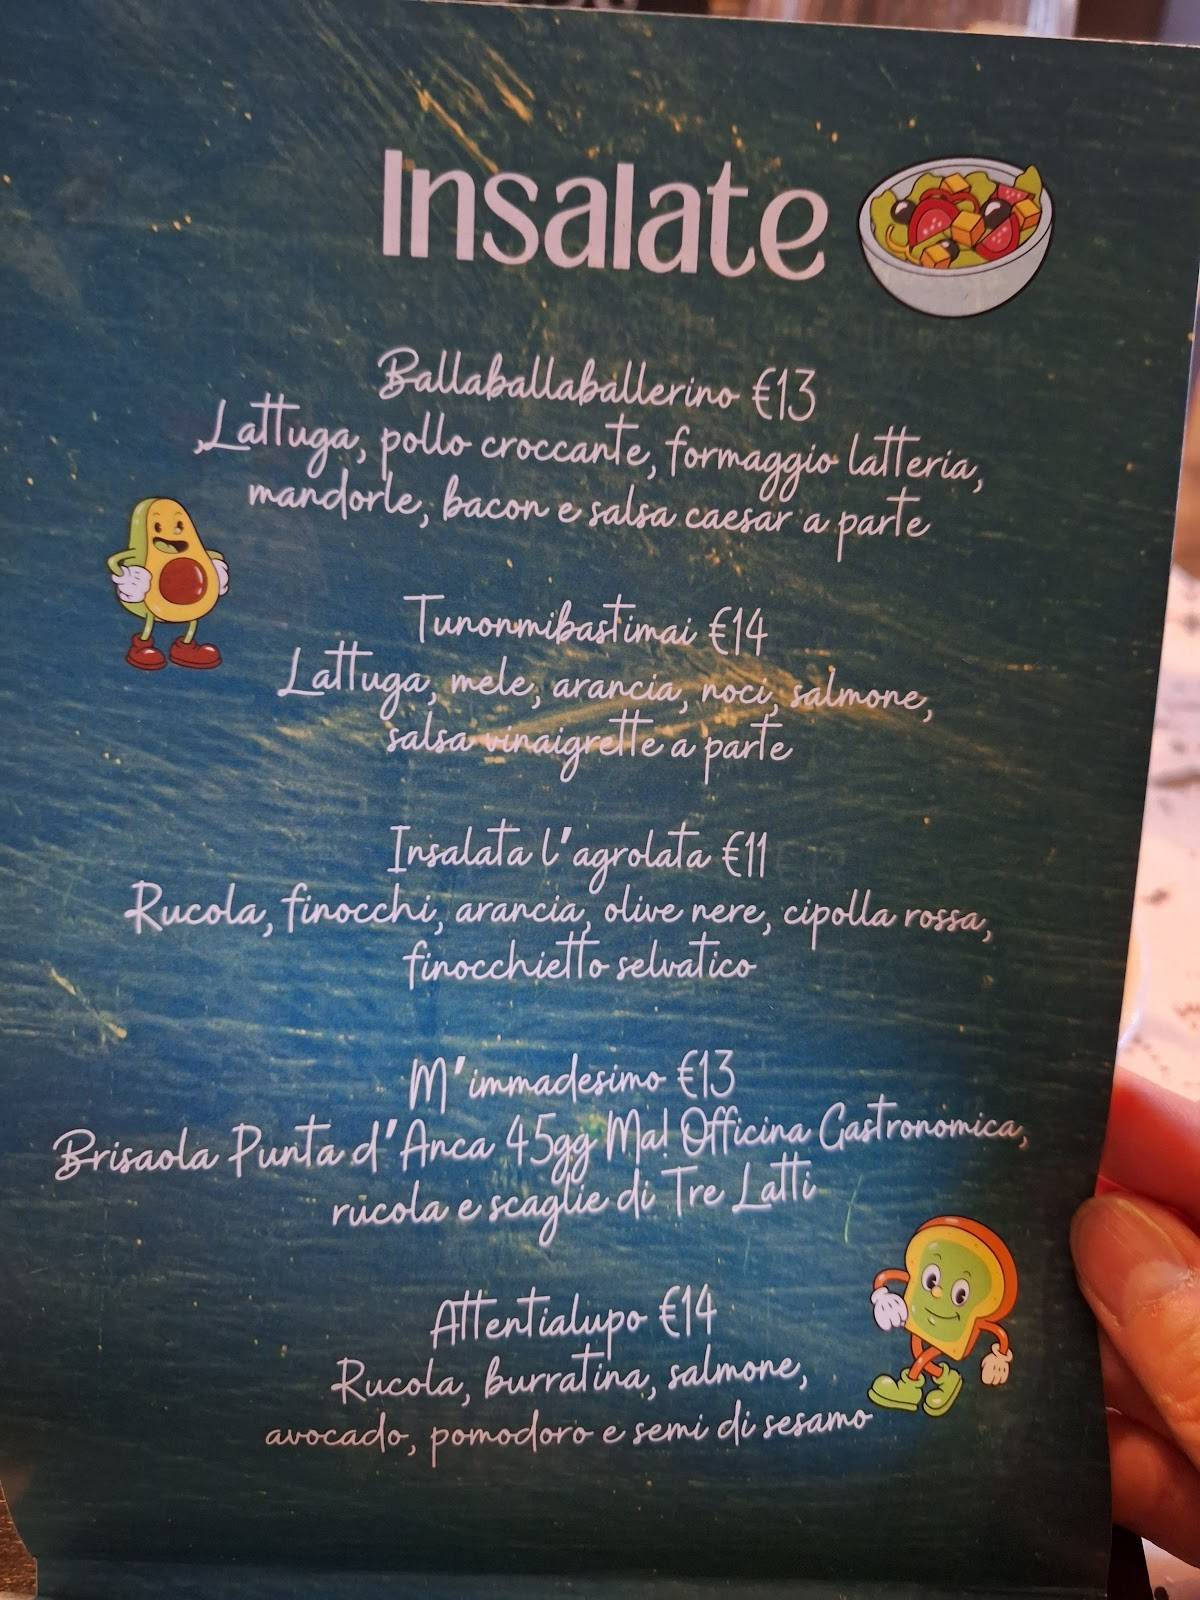 Insalate
Ballaballaballerino €13
Lattuga, pollo croccante, formaggio latteria,
mandorle, bacon e salsa caesar a parte
Tunonmibastimai €14
Lattuga, mele, arancia, noci, salmone,
salsa vinaigrette a parte
Insalata l'agrolata €11
Rucola, finocchi, arancia, olive nere, cipolla rossa,
finocchietto selvatico
M'immadesimo €13
Brisaola Punta d'Anca 45gg Ma! Officina Gastronomica,
rucola e scaglie di Tre Latti
Attentialupo €14
Rucola, burratina, salmone,
avocado, pomodoro e semi di sesamo